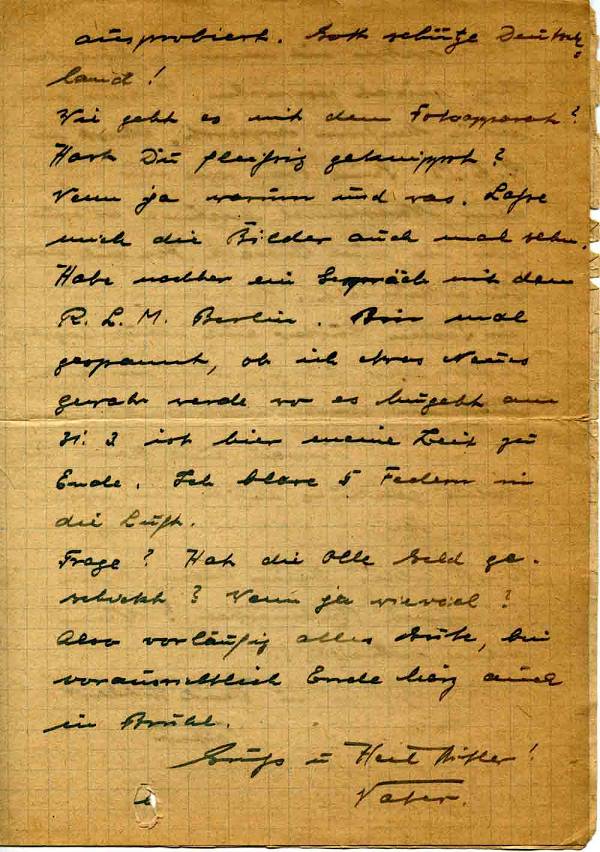 ausprobiert. Gott schütze Deutsch
land!
Wie geht es mit dem Fotoapparat?
Hast Du fleißig geknippst?
Wenn ja warum und was. Lasse
mich die Bilder auch mal sehn.
Habe nachher ein Gespräch mit dem
R. L. M. Berlin. Bin mal
gespannt, ob ich etwas Neues
gewahr werde wo es hingeht am
31. 3 ist hier meine Zeit zu
Ende. Ich blase 5 Federn in
die Luft.
Frage? Hat die Olle Geld ge-
schickt? Wenn ja wieviel?
Also vorläufig alles Gute, bin
voraussichtlich Ende März auch
in Brühl.
Gruß u Heil Hitler!
Vater.